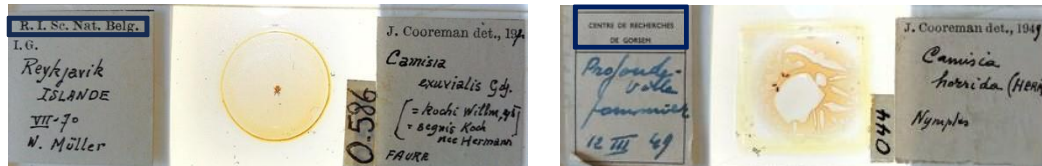 R. I. Sc. Nat. Belg.
I.G.
Reykjavik
ISLANDE
VII-70
W. Müller
0.586
J. Cooreman det., 19
Camisia
exuvialis Gdj.
[= kochi Willm,
= segnis Koch
nec Hermann
FAUNE
CENTRE DE RECHERCHES
DE GORSEM
Profonde-
ville
12 III 49
044
J. Cooreman det., 1949
Camisia
horrida (HERM
Nymphes